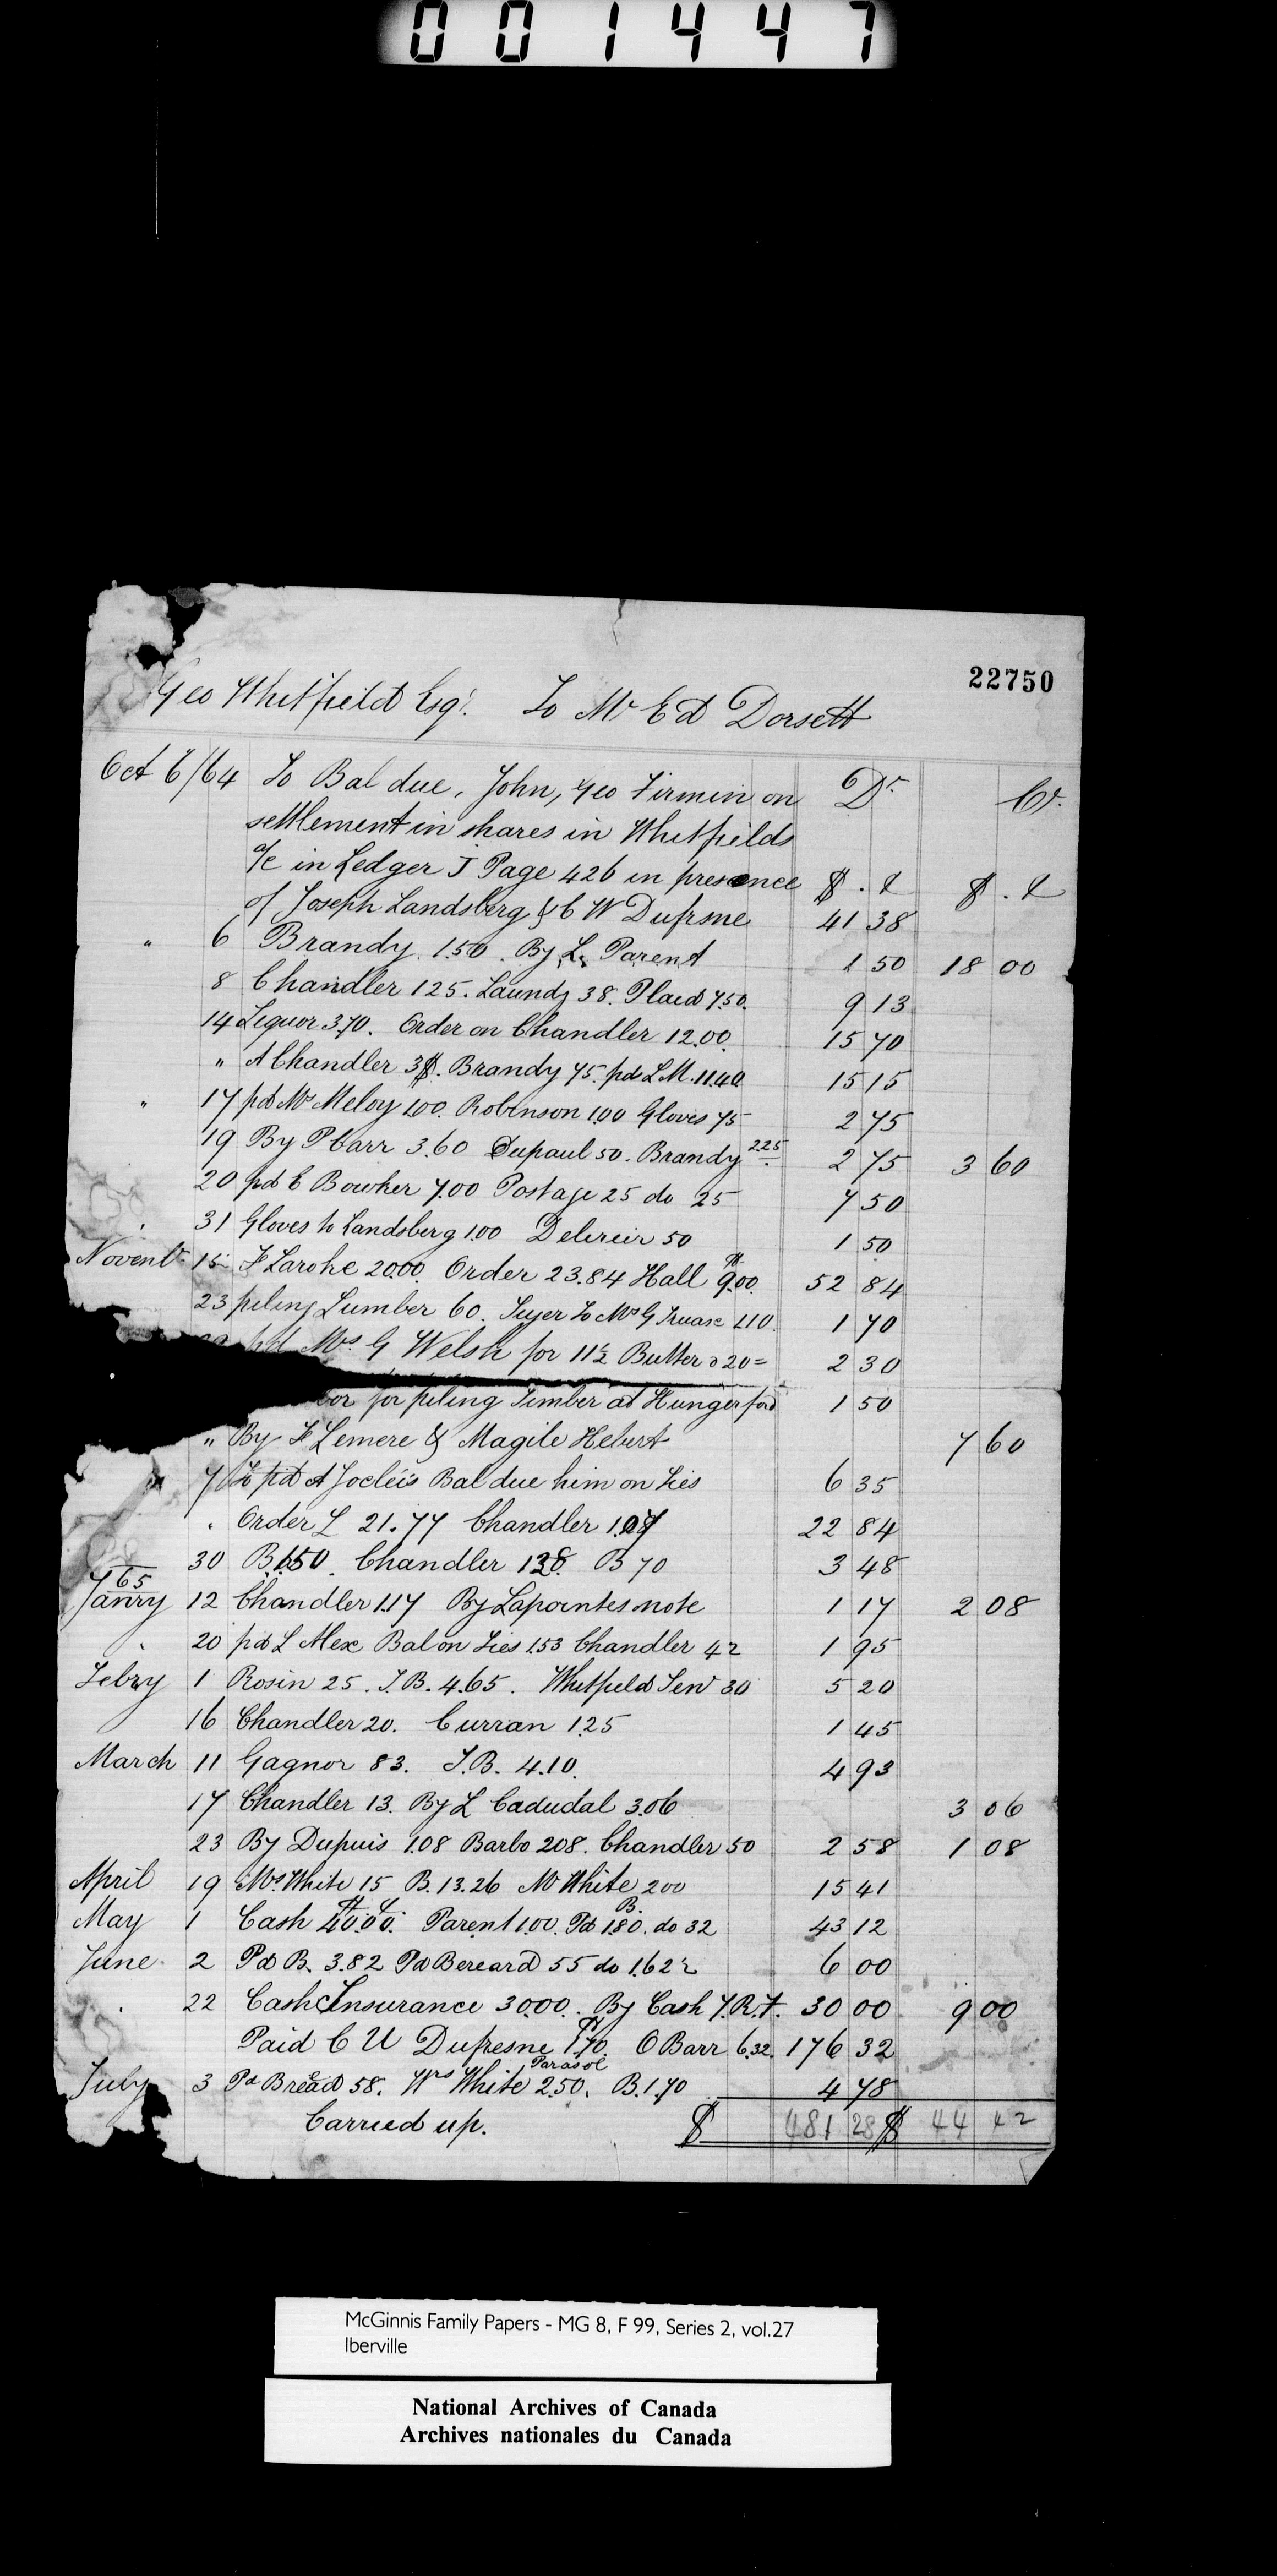 001447
22750
Geo Whitfield Esqr. To Mr Ed Dorsett
Oct 6/64 To Bal due, John, Geo Firmin on Dr Cr.
settlement in shares in Whitfields
a/c in Ledger J Page 426 in presence $ . ¢ $ . ¢
of Joseph Landsberg & C W Dufrsne 41 38
" 6 Brandy 1.50. By L. Parent 1 50 18 00
8 Chandler 125. Laundy 38. Plaid 7.50. 9 13
14 Liquor 3.70. Order on Chandler 12.00. 15 70
" A Chandler 3$. Brandy 75. pd L M. 11.40 15 15
" 17 pd Mr Meloy 1.00. Robinson 1.00 Gloves 75 2 75
19 By P Carr 3.60 Dupaul 50. Brandy 2.25 2 75 3 60
20 pd E Bowker 7.00 Postage 25 do 25 7 50
31 Gloves to Landsberg 1.00 50 1 50
Novembr 15 F Laroke 20.00. Order 23.84 Hall $ 9.00. 52 84
23 piling Lumber 60. To Mrs G Truax 1.10. 1 70
pd Mrs G Welsh for 11½ Butter @ 20= 2 30
for piling Timber at Hungerford 1 50
" By F Lemere & Magile Hebert 7 60
7 To pd A Bal due him on Ties 6 35
. Order L 21.77 Chandler 1.07 22 84
30 B. 1.50. Chandler 1.28. B 70 3 48
65
Janry 12 Chandler 1.17 By Lapointes note 1 17 2 08
20 pd L Mex Bal on Ties 1.53 Chandler 42 1 95
Febry 1 Rosin 25. J.B. 4.65. Whitfield Senr 30 5 20
16 Chandler 20. Curran 1.25 1 45
March 11 Gagnor 83. J.B. 4.10. 4 93
17 Chandler 13. By L Cadudal 3.06 3 06
23 By Dupuis 1.08 Barbo 208. Chandler 50 2 58 1 08
April 19 Mrs White 15 B. 13.26 Mr White 200 15 41
May 1 Cash $ ¢ 40.00. Parent 1.00. Pd B. 1.80. do 32 43 12
June 2 Pd B. 3.82 Pd Bereard 55 do 1.62½ 6 00
. 22 Cash Insurance 30.00. By Cash Y.R.F. 30 00 9 00
Paid C U Dufresne $ 170. O Barr 6.32. 176 32
July 3 Pd Bread 58. Wrs White Parasol 2.50. B. 1.70 4 78
Carried up. $ 481 28 $ 44 42
McGinnis Family Papers - MG 8, F 99, Series 2, vol.27
Iberville
National Archives of Canada
Archives nationales du Canada